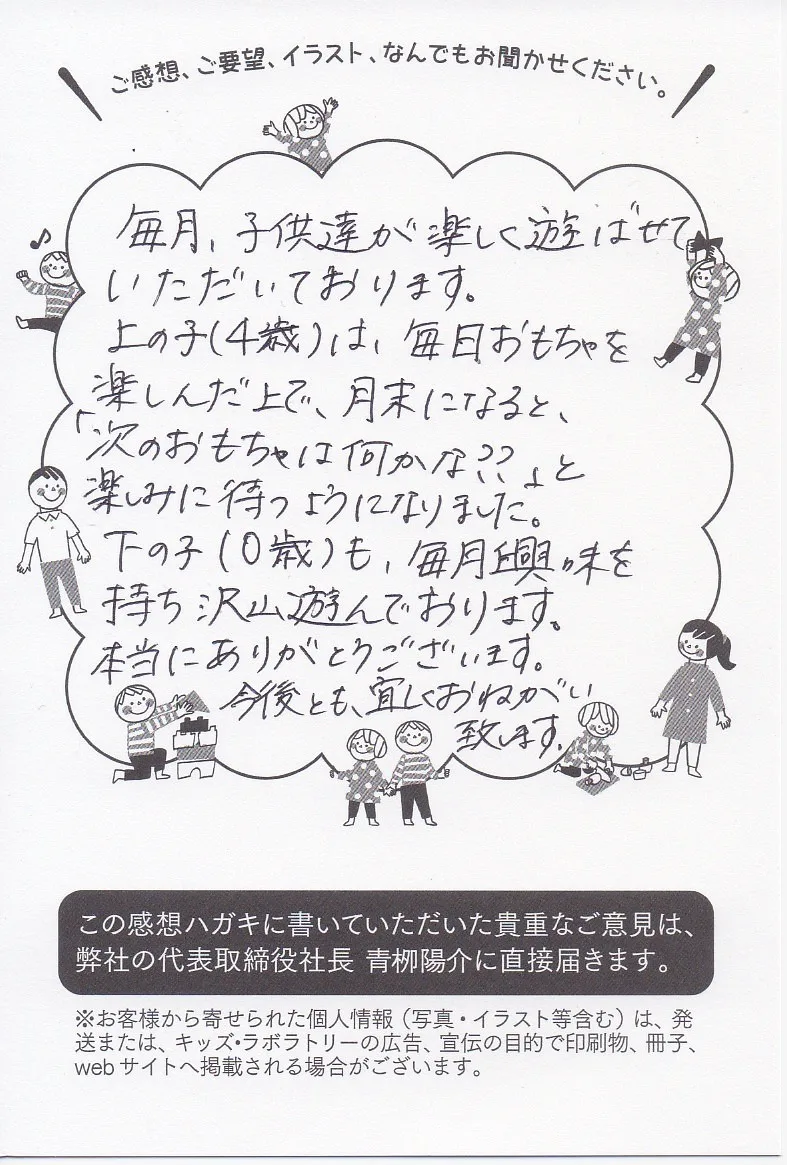 ご感想、ご要望、イラスト、なんでもお聞かせください。
毎月、子供達が楽しく遊ばせて
いただいております。
上の子(4歳)は、毎日おもちゃを
楽しんだ上で、月末になると、
「次のおもちゃは何かな??」と
楽しみに待つようになりました。
下の子(0歳)も、毎月興味を
持ち沢山遊んでおります。
本当にありがとうございます。
今後とも、宜しくおねがい
致します。
この感想ハガキに書いていただいた貴重なご意見は、
弊社の代表取締役社長 青栁陽介に直接届きます。
※お客様から寄せられた個人情報(写真・イラスト等含む)は、発
送または、キッズ・ラボラトリーの広告、宣伝の目的で印刷物、冊子、
webサイトへ掲載される場合がございます。